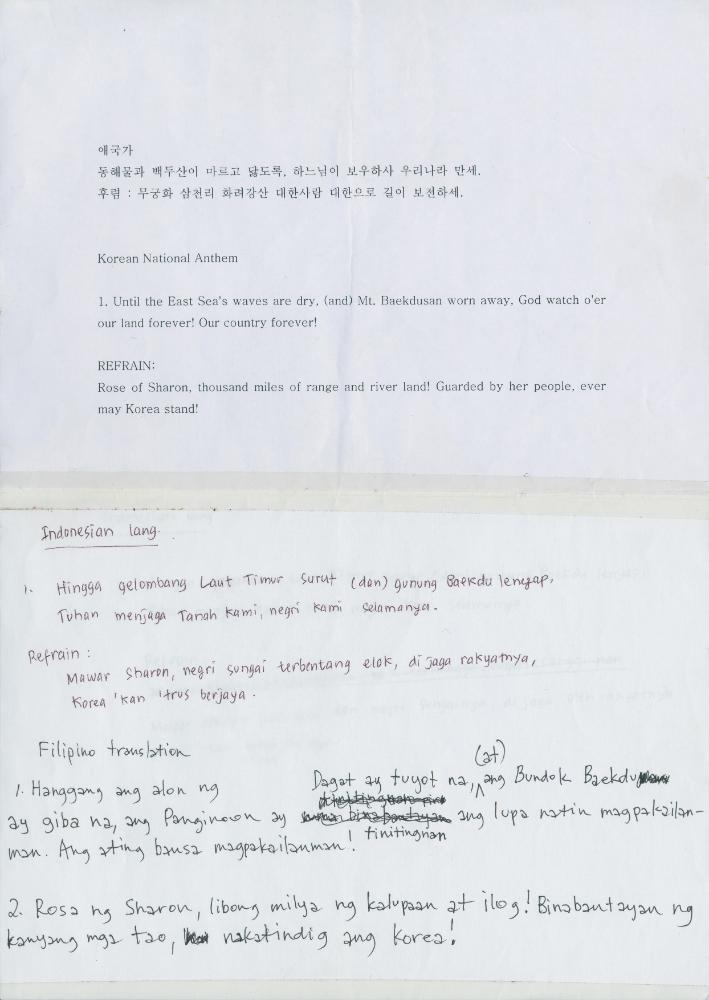 애국가
동해물과 백두산이 마르고 닳도록, 하느님이 보우하사 우리나라 만세.
후렴 : 무궁화 삼천리 화려강산 대한사람 대한으로 길이 보전하세.
Korean National Anthem
1. Until the East Sea's waves are dry, (and) Mt. Baekdusan worn away, God watch o'er
our land forever! Our country forever!
REFRAIN:
Rose of Sharon, thousand miles of range and river land! Guarded by her people, ever
may Korea stand!
Indonesian lang.
1. Hingga gelombang Laut Timur surut (dan) gunung Baekdu lenyap,
Tuhan menjaga Tanah kami, negri kami selamanya.
Refrain :
Mawar Sharon, negri sungai terbentang elok, di jaga rakyatnya,
Korea 'kan 'trus berjaya.
Filipino translation
1. Hanggang ang alon ng Dagat ay tuyot na, (at) ang Bundok Baekdu
ay giba na, ang Panginoon ay tinitingnan ang lupa natin magpakailan-
man. Ang ating bansa magpakailanman!
2. Rosa ng Sharon, libong milya ng kalupaan at ilog! Binabantayan ng
kanyang mga tao, nakatindig ang Korea!